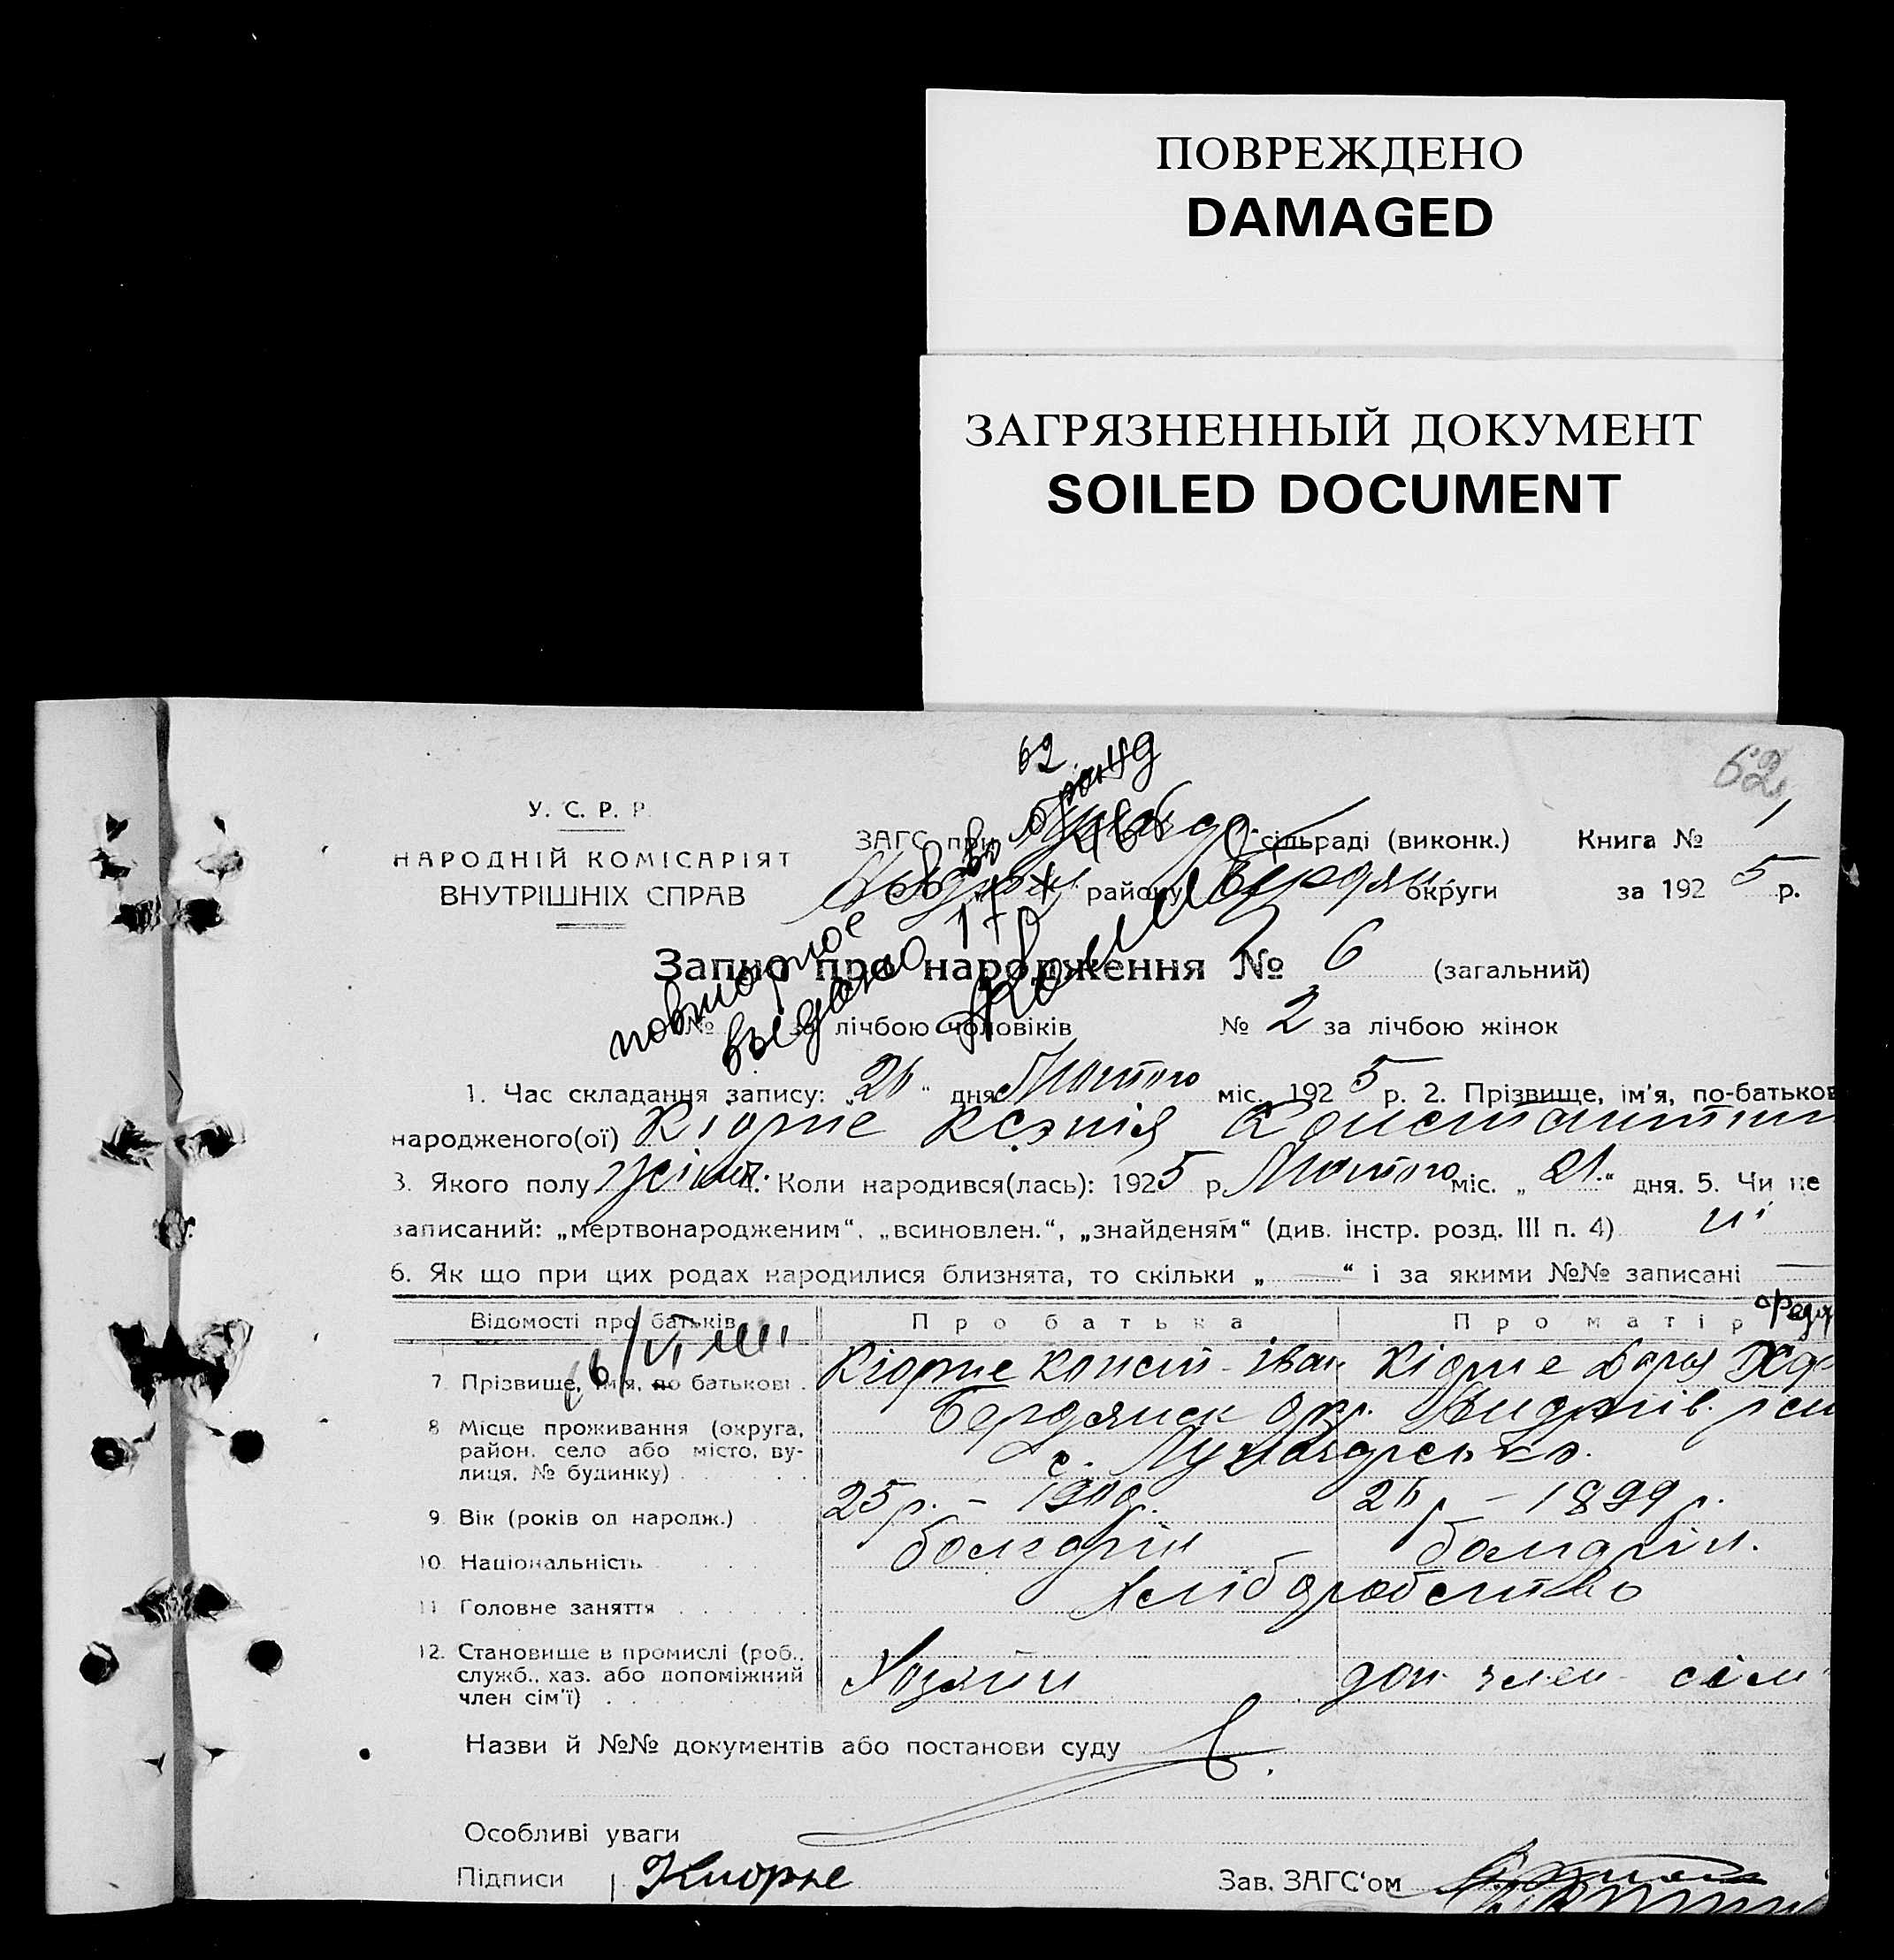 ПОВРЕЖДЕНО
DAMAGED
ЗАГРЯЗНЕННЫЙ ДОКУМЕНТ
SOILED DOCUMENT
62
62
У. С. Р. Р.
НАРОДНІЙ КОМІСАРІЯТ
ВНУТРІШНІХ СПРАВ
ЗАГС при сільраді (виконк.) Книга № 1
району Бердян округи за 1925 р.
повторное
выдано
Запис про народження № 6 (загальний)
№ за лічбою чоловіків № 2 за лічбою жінок
1. Час складання запису: „26“ дня Лютого міс. 1925 р. 2. Прізвище, ім'я, по-батьков
народженого(ої) Кіорпе Ксэнія Константин
3. Якого полу жіноч. 4. Коли народився(лась): 1925 р. Лютого міс. „21.“ дня. 5. Чи не
записаний: „мертвонародженим“, „всиновлен.“, „знайденям“ (див. інстр. розд. III п. 4) ні
6. Як що при цих родах народилися близнята, то скільки „—“ і за якими №№ записані —
Відомості про батьків Про батька Про матір
7. Прізвище, ім'я, по батькові Кіорпе Конст. Іван Кіорпе Дарья
8. Місце проживання (округа, район, село або місто, вулиця, № будинку) Бердянск окр.
с. Луначарсько.
9. Вік (років од народж.) 25 р. – 1900 р. 26 р – 1899 р.
10. Національність болгарін болгарін.
11. Головне заняття Хліборобство
12. Становище в промислі (роб., служб., хаз. або допоміжний член сім'ї) Хозяїн доп. член сім
Назви й №№ документів або постанови суду
Особливі уваги
Підписи Киорпе Зав. ЗАГС'ом